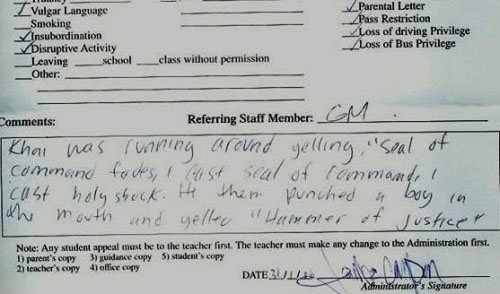 ✓Vulgar Language
___Smoking
✓Insubordination
✓Disruptive Activity
___Leaving ____school ____class without permission
___Other:
✓Parental Letter
✓Pass Restriction
✓Loss of driving Privilege
✓Loss of Bus Privilege
Comments: Referring Staff Member: GM
Khai was running around yelling, "Seal of
command fades, I cast seal of command, I
cast holy shock. He them punched a boy in
the mouth and yelled "Hammer of Justice"
Note: Any student appeal must be to the teacher first. The teacher must make any change to the Administration first.
1) parent's copy 3) guidance copy 5) student's copy
2) teacher's copy 4) office copy
DATE
Administrator's Signature